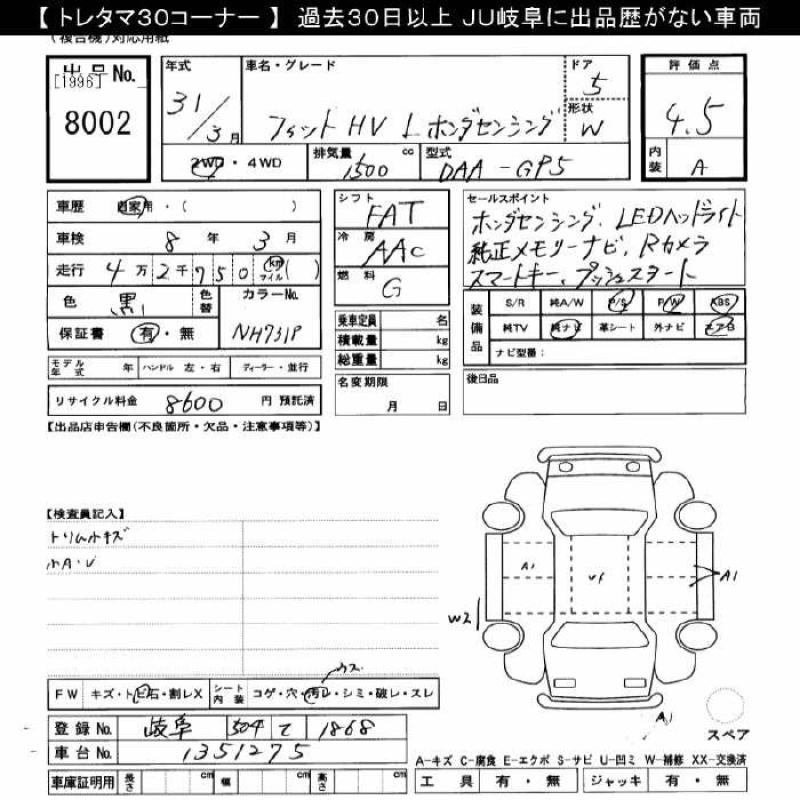 【 トレタマ30コーナー 】 過去30日以上 JU岐阜に出品歴がない車両
(複合機)対応用紙
出品No. [1996] 8002
年式 31/3月
車名・グレード フィット HV L ホンダセンシング
ドア 5
形状 W
2WD・4WD
排気量 1500 cc
型式 DAA-GP5
評価点 4.5
内装 A
車歴 自家用・( )
車検 8年 3月
走行 4万2千750 km マイル ( )
色 黒 色替 カラーNo. NH731P
保証書 有・無
モデル年式 年 ハンドル 左・右 ディーラー・並行
リサイクル料金 8600 円 預託済
シフト FAT
冷房 AAC
燃料 G
乗車定員 名
積載量 kg
総重量 kg
名変期限 月 日
セールスポイント
ホンダセンシング、LEDヘッドライト
純正メモリーナビ、Rカメラ
スマートキー、プッシュスタート
装備品 S/R 純A/W P/S P/W ABS
純TV 純ナビ 革シート 外ナビ エアB
ナビ型番:
後日品
【出品店申告欄(不良箇所・欠品・注意事項等)】
【検査員記入】
トリム小キズ
小A・U
A1 vf A1
W2
A1
スペア
ウス
FW キズ・トビ石・割レX シート内装 コゲ・穴・汚レ・シミ・破レ・スレ
登録No. 岐阜 504 て 1868
車台No. 1351275
車庫証明用 長さ cm 幅 cm 高さ cm
A-キズ C-腐食 E-エクボ S-サビ U-凹ミ W-補修 XX-交換済
工具 有・無 ジャッキ 有・無